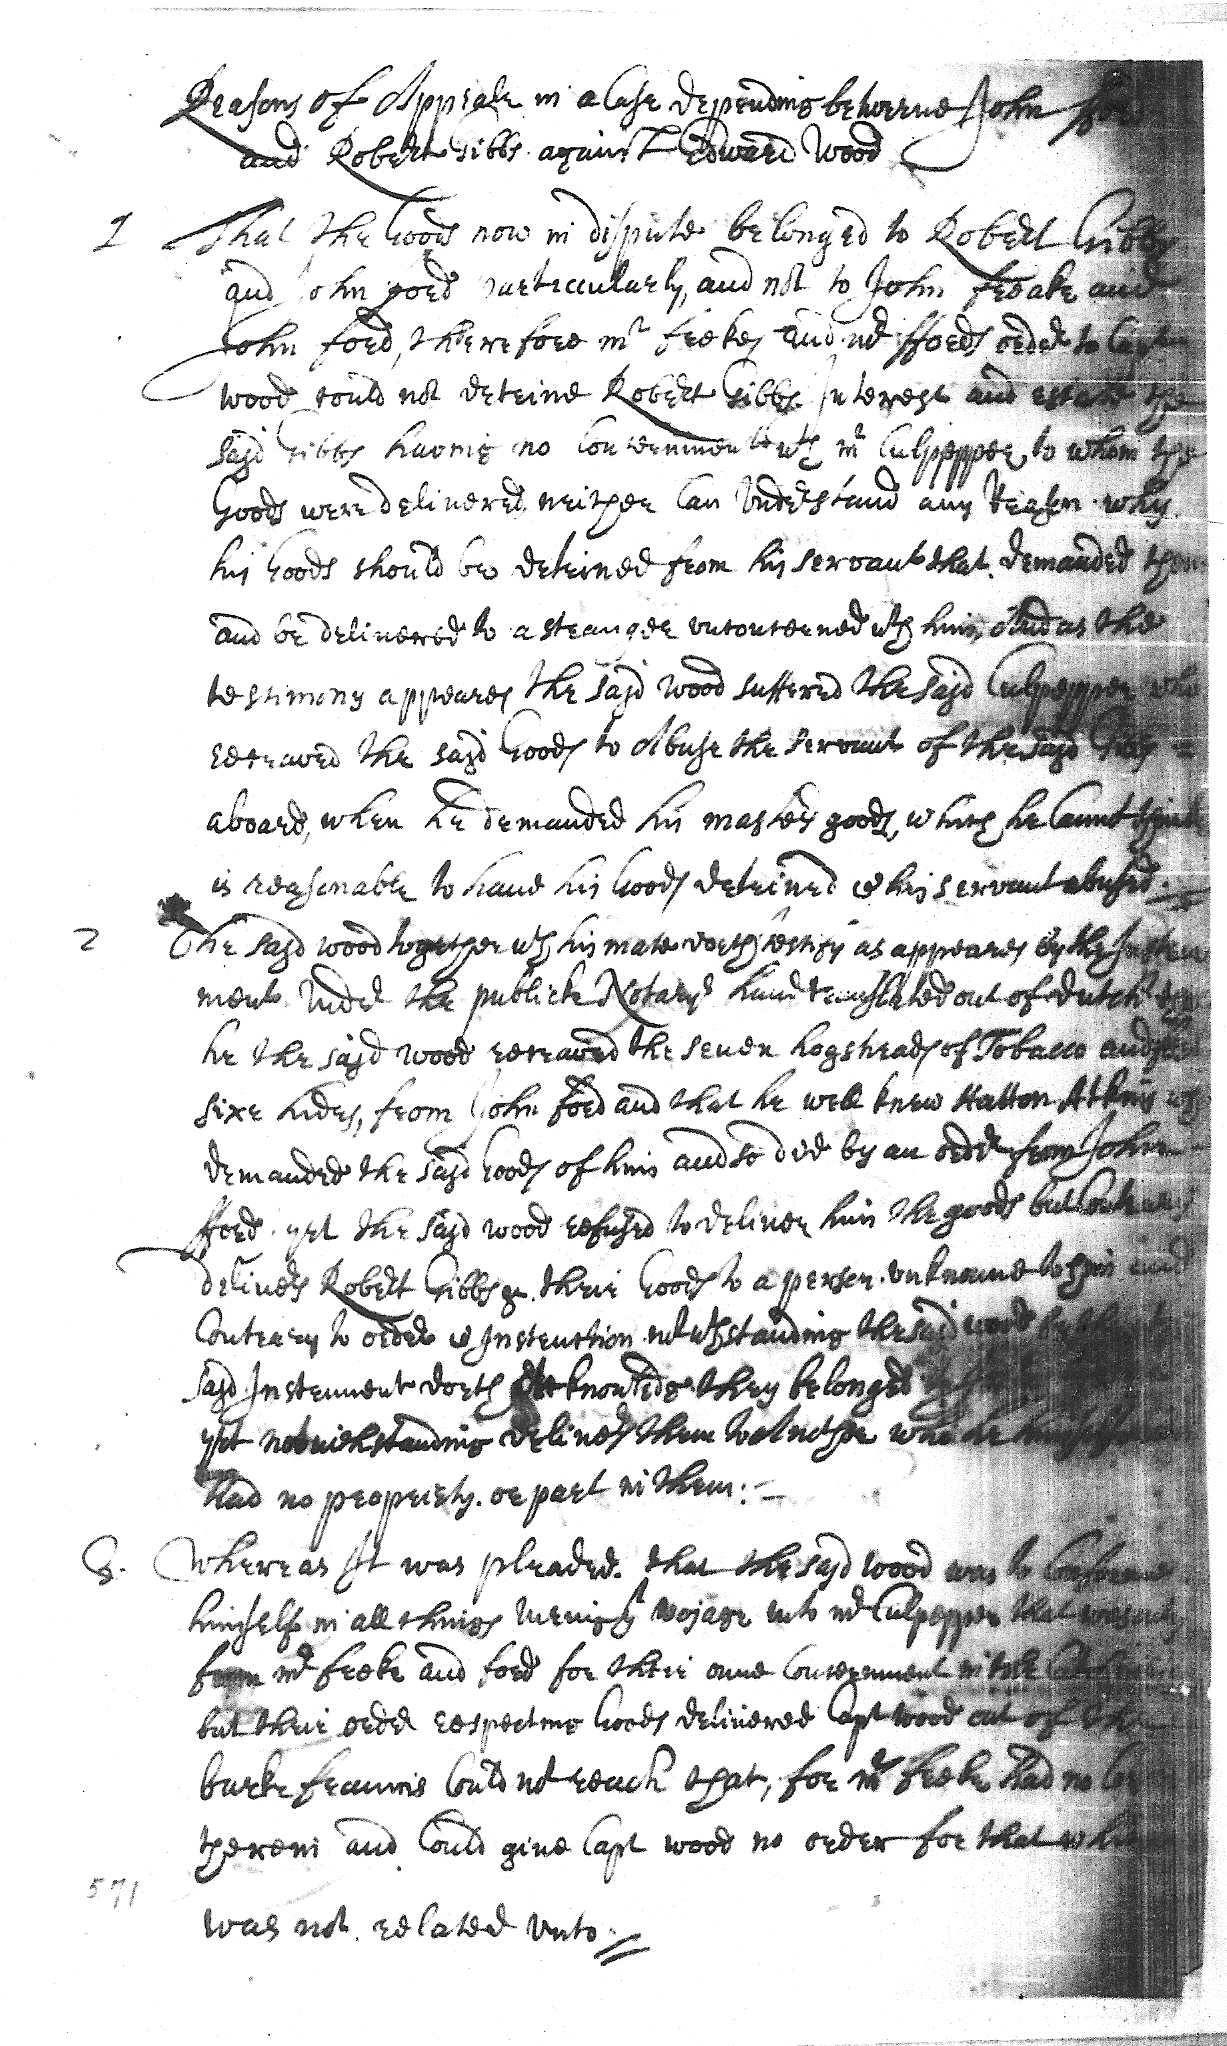 Reasons of Appeale in a Case depending betweene John fford
and Robert Gibbs against Edward Wood
1 That the Goods now in dispute belonged to Robert Gibbs
and John ford particularly, and not to John freake and
John ford, therefore mr freekes and mr ffords order to Capt
wood Could not deteine Robert Gibbs Interest and estate the
sajd Gibbs having no Concernment wth mr Culpepper to whom the
Goods were delivered neither Can Understand any Reason why
his Goods should be deteined from his servant that demanded them
and be delivered to a stranger unconcerned wth him, And as the
testimony appeares the sajd wood suffered the sajd Culpepper who
receaved the sajd Goods to Abuse the servant of the sajd Gibs
aboard, when he demanded his masters goods, which he Cannot thinke
is reasonable to have his Goods deteined & his servant abused.
2 The sajd wood together wth his mate doeth testify as appeares by the Instru
ment Under the publick Notarys hand translated out of dutch that
he the sajd wood receaved the seven hogsheads of Tobacco and
sixe hides, from John ford and that he well knew Hatton Atkins who
demanded the sajd Goods of him and so did by an order from John
fford yet the sajd wood refused to deliver him the goods but Contrary
delivers Robert Gibbs &. their Goods to a person unknowne to him and
Contrary to order & Instruction notwthstanding the sajd wood by the
sajd Instrument doeth Acknowledge they belonged
yet notwithstanding delivers them to Another who he
had no propriety or part in them:-
3. Whereas It was pleaded that the sajd wood was to Conforme
himself in all things during ye vojage unto mr Culpepper that was only
from mr freeke and ford for their owne Concernment in the
but their order respecting Goods delivered Capt wood out of the
barke francis Could not reach that, for mr freeke had no
therein and Could give Capt wood no order for that which
was not related unto
571